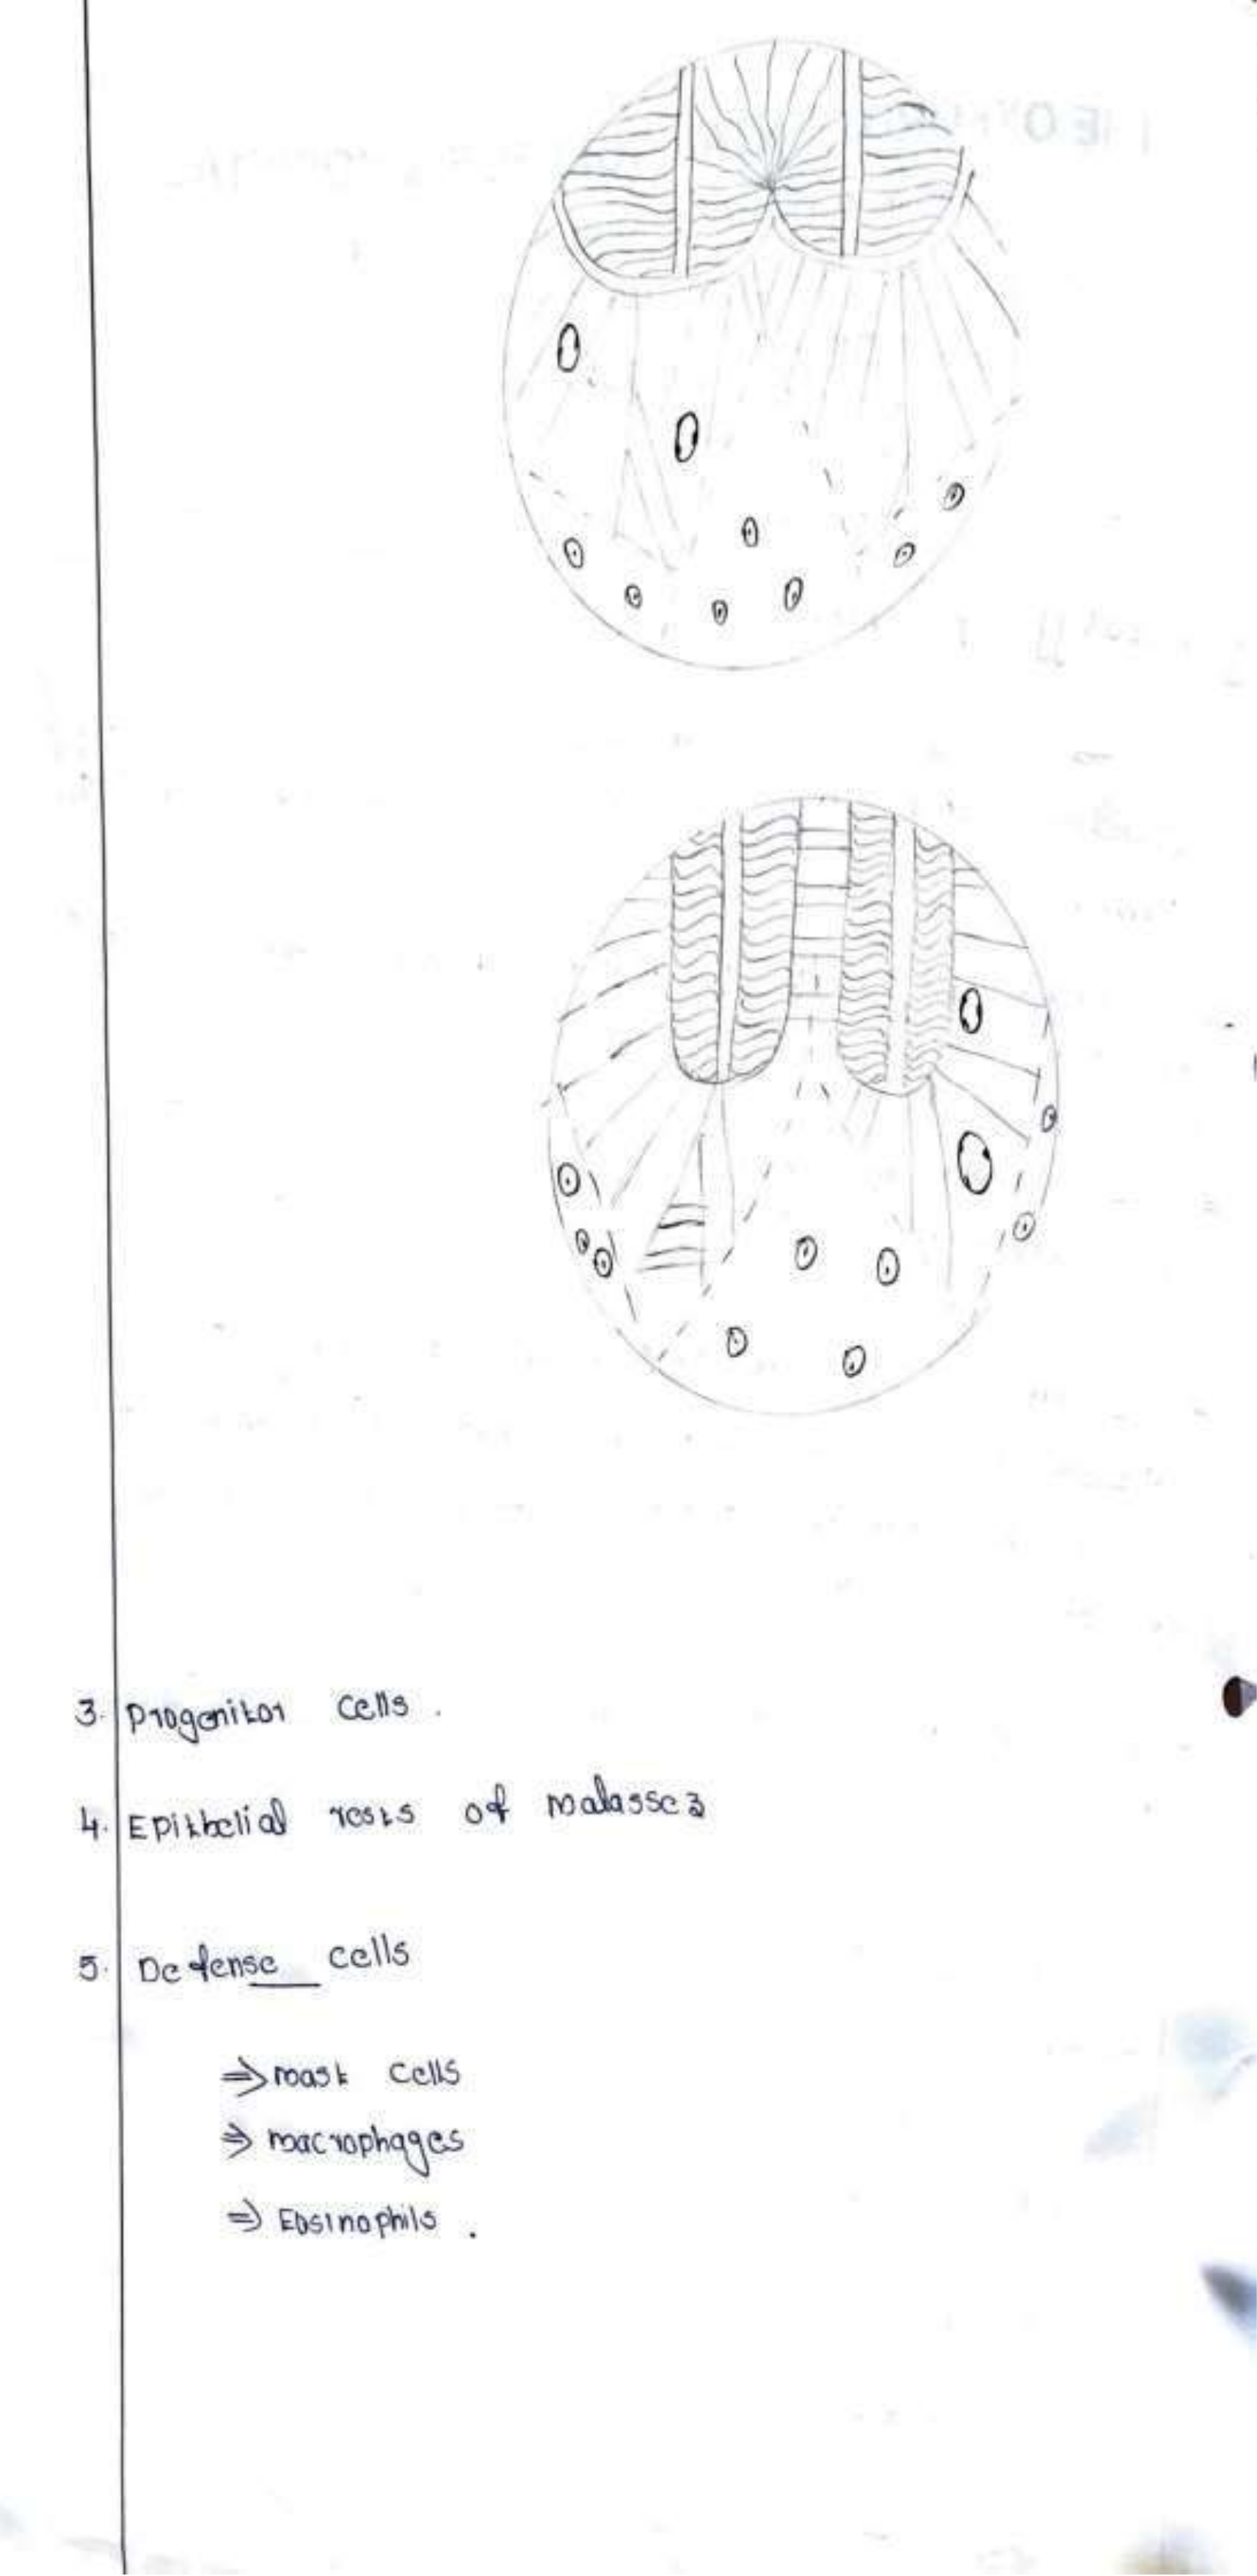 3. Progenitor cells.
4. Epithelial rests of malassez
5. Defense cells
⇒ mast cells
⇒ macrophages
⇒ Eosinophils.